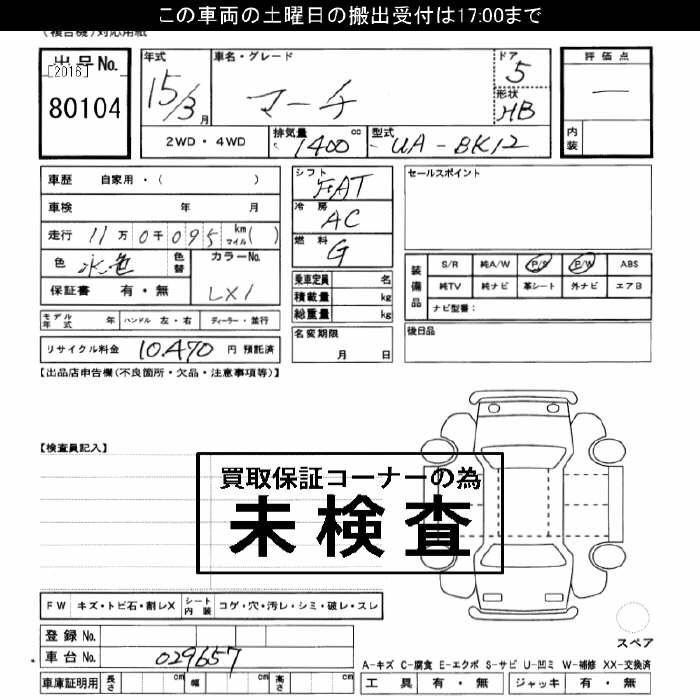 この車両の土曜日の搬出受付は17:00まで
(複合機)対応用紙
出品No.
[2016]
80104
年式
15/3月
車名・グレード
マーチ
ドア
5
形状
HB
評価点
―
内装
2WD・4WD
排気量
1400cc
型式
UA-BK12
車歴 自家用・( )
車検 年 月
走行 11万0千095 km マイル( )
色 水色 色替
カラーNo.
LX1
保証書 有・無
シフト
FAT
冷房
AC
燃料
G
乗車定員 名
積載量 kg
総重量 kg
セールスポイント
装備品
S/R 純A/W P/S P/W ABS
純TV 純ナビ 革シート 外ナビ エアB
ナビ型番:
モデル年式 年 ハンドル 左・右 ディーラー・並行
名変期限
月 日
後日品
リサイクル料金 10,470 円 預託済
【出品店申告欄(不良箇所・欠品・注意事項等)】
【検査員記入】
買取保証コーナーの為
未検査
FW キズ・トビ石・割レX シート内装 コゲ・穴・汚レ・シミ・破レ・スレ
登録No.
車台No. 029657
車庫証明用 長さ cm 幅 cm 高さ cm
スペア
A-キズ C-腐食 E-エクボ S-サビ U-凹ミ W-補修 XX-交換済
工具 有・無 ジャッキ 有・無